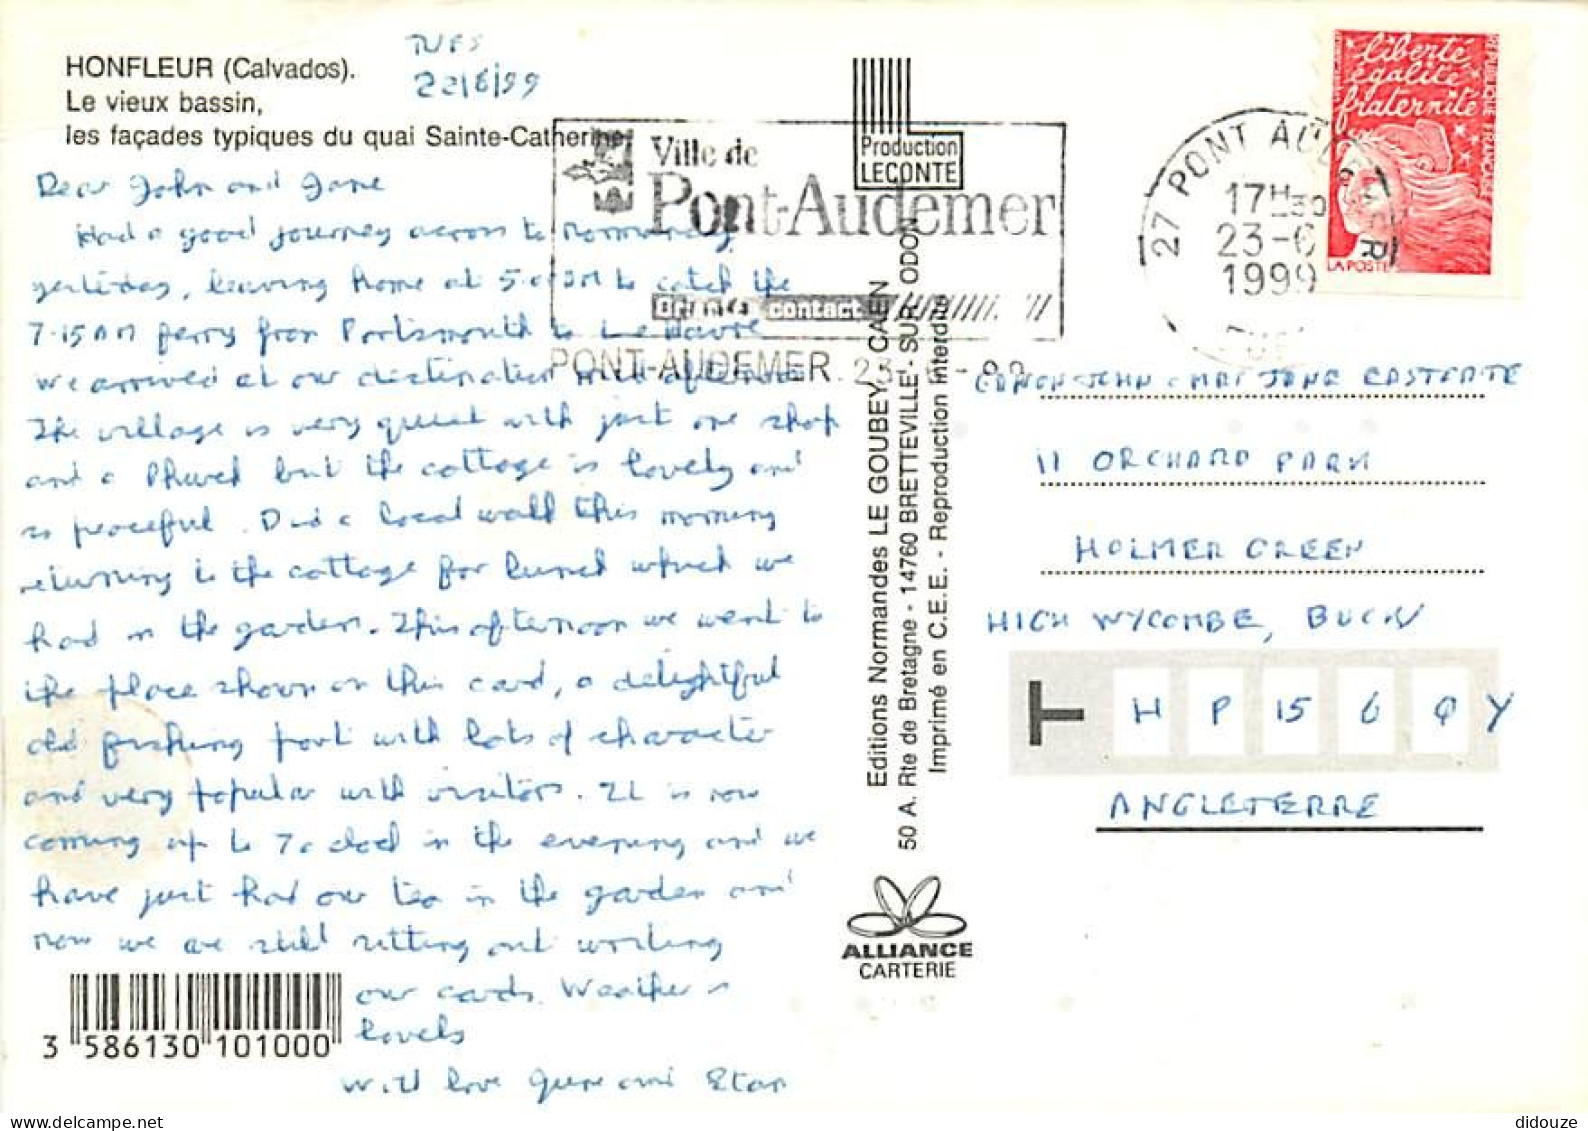 HONFLEUR (Calvados).
Le vieux bassin,
les façades typiques du quai Sainte-Catherine
TUES
22/6/99
Dear John and Jane
Had a good journey across to Normandy
yesterday, leaving home at 5.0 AM to catch the
7.15 AM ferry from Portsmouth to Le Havre
we arrived at our destination mid afternoon
The village is very quiet with just one shop
and a church but the cottage is lovely and
so peaceful. Did a local walk this morning
returning to the cottage for lunch which we
had in the garden. This afternoon we went to
the place shown on this card, a delightful
old fishing port with lots of character
and very popular with visitors. It is now
coming up to 7 o clock in the evening and we
have just had our tea in the garden and
now we are still sitting out writing
our cards. Weather is
lovely
With love June and Stan
3 586130 101000
Production
LECONTE
Ville de
Pont-Audemer
contact
PONT-AUDEMER 23
Editions Normandes LE GOUBEY - CAEN
50 A. Rte de Bretagne - 14760 BRETTEVILLE - SUR - ODON
Imprimé en C.E.E. - Reproduction interdite
ALLIANCE
CARTERIE
27 PONT AUDEMER
17H30
23-6
1999
EURE
liberté
égalité
fraternité
REPUBLIQUE FRANÇAISE
LA POSTE
JOHN JANE
11 ORCHARD PARK
HOLMER GREEN
HIGH WYCOMBE, BUCKS
T HP15 6QY
ANGLETERRE
didouze